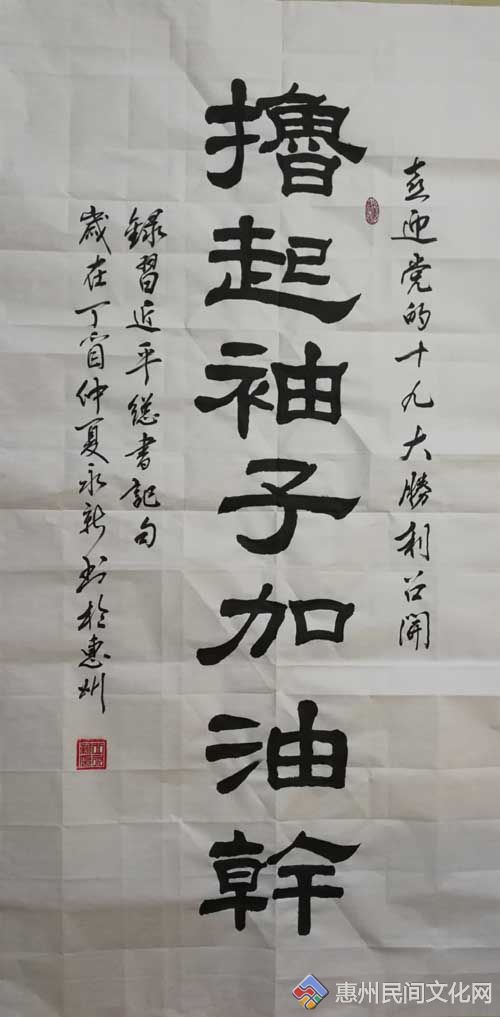 喜迎党的十九大勝利召開
擼起袖子加油幹
録習近平總書記句
歲在丁酉仲夏永新书於惠州
惠州民间文化网